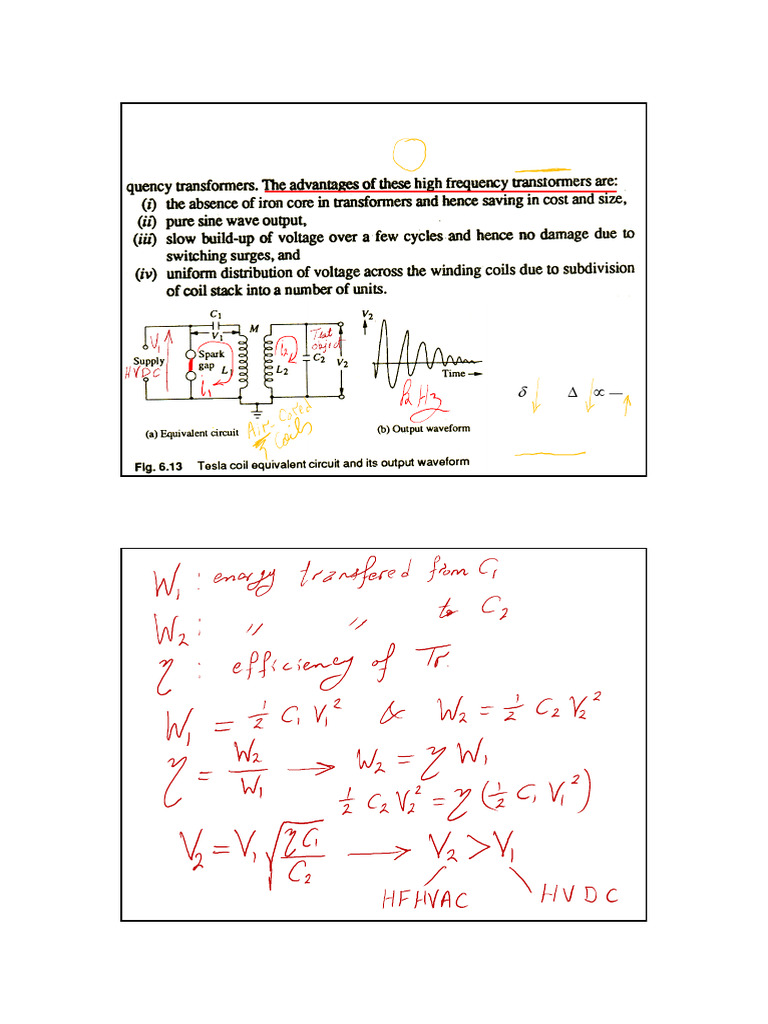 quency transformers. The advantages of these high frequency transformers are:
(i) the absence of iron core in transformers and hence saving in cost and size,
(ii) pure sine wave output,
(iii) slow build-up of voltage over a few cycles and hence no damage due to
switching surges, and
(iv) uniform distribution of voltage across the winding coils due to subdivision
of coil stack into a number of units.
C₁
V₁
M
V₂
V₁
Supply
HVDC
Spark
gap
i₁
L₁
L₂
i₂
Test
object
C₂
V₂
Time
δ ↓ Δ ↓ ∝ — ↑
(a) Equivalent circuit
Air-Cored
Coils
(b) Output waveform
Fig. 6.13 Tesla coil equivalent circuit and its output waveform
W₁ : energy transfered from C₁
W₂ : " " to C₂
η : efficiency of Tr.
W₁ = ½ C₁ V₁² & W₂ = ½ C₂ V₂²
η = W₂/W₁ → W₂ = η W₁
½ C₂ V₂² = η (½ C₁ V₁²)
V₂ = V₁ √(ηC₁/C₂) → V₂ > V₁
HFHVAC HVDC